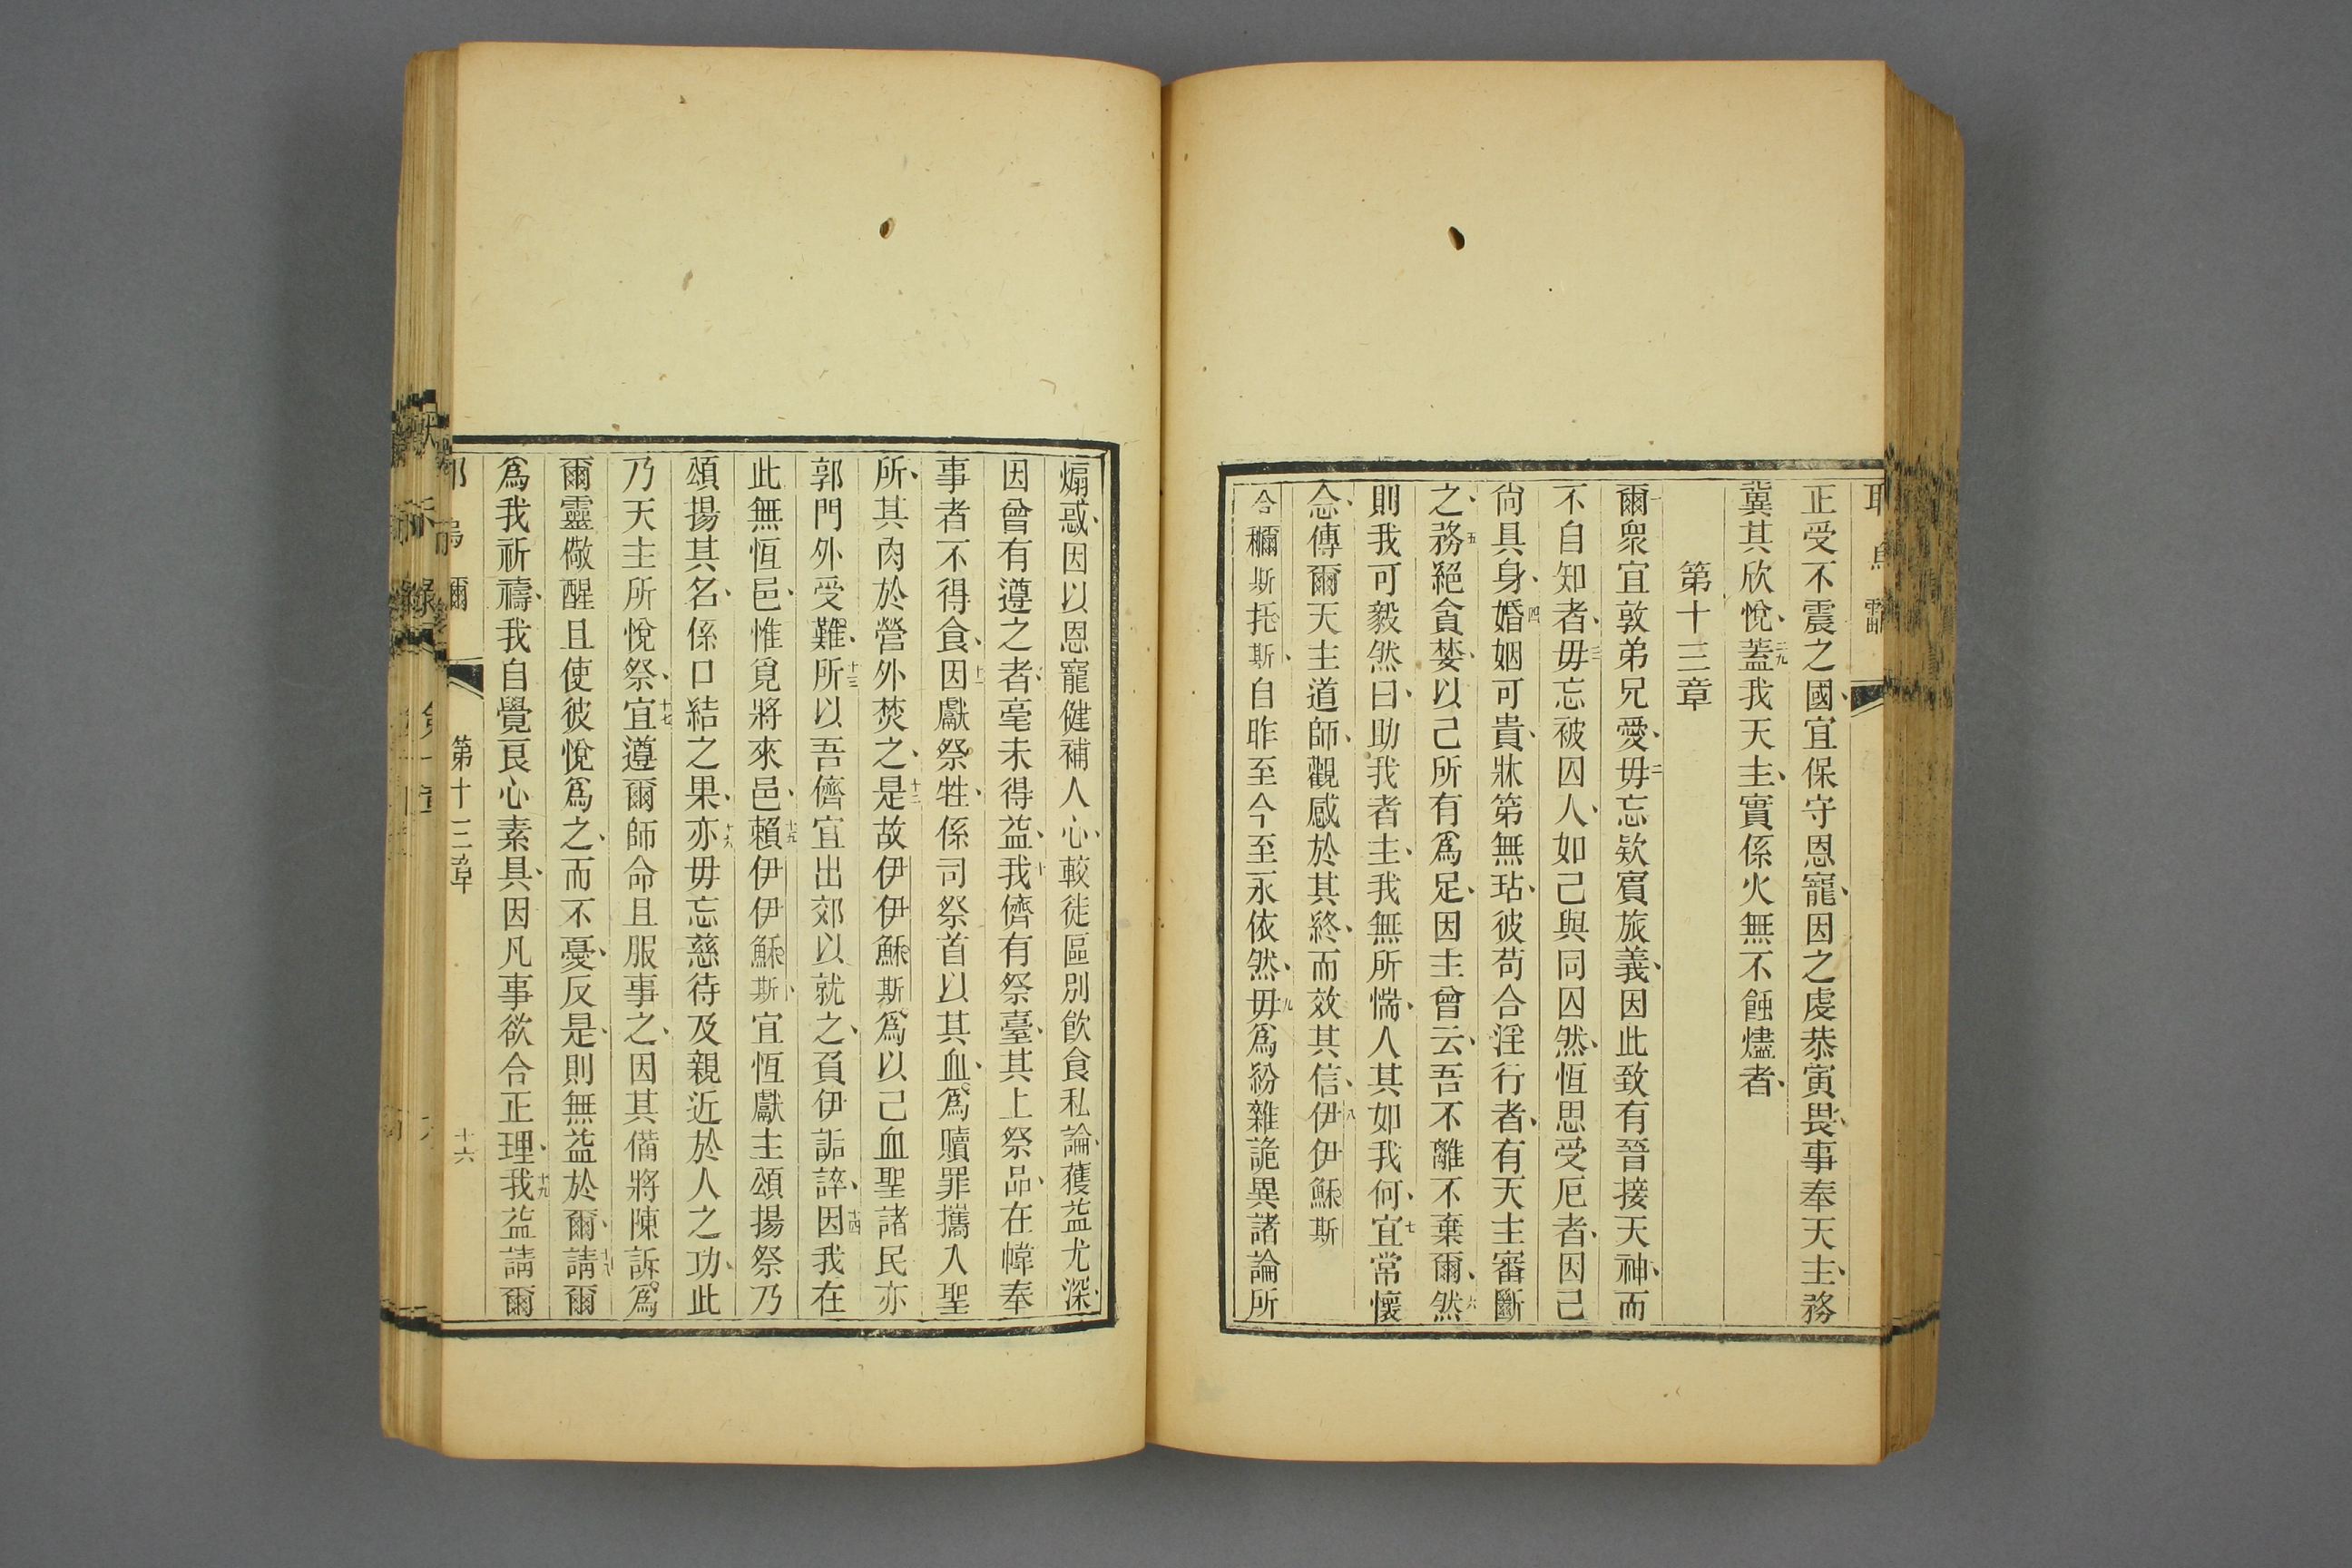 正受不震之國、宜保守恩寵、因之虔恭寅畏、事奉天主、務
冀其欣悅、二九蓋我天主、實係火無不蝕燼者、
第十三章
一爾衆宜敦弟兄愛、二毋忘欵賓旅義、因此致有晉接天神、而
不自知者、三毋忘被囚人、如己與同囚然、恆思受厄者、因己
尙具身、四婚姻可貴、牀第無玷、彼苟合淫行者、有天主審斷
之、五務絕貪婪、以己所有爲足、因主曾云、吾不離不棄爾、六然
則我可毅然曰、助我者主、我無所惴、人其如我何、七宜常懷
念、傳爾天主道師、觀感於其終、而效其信、八伊伊穌斯
合穪斯托斯、自昨至今至永依然、九毋爲紛雜詭異諸論所
煽惑、因以恩寵健補人心、較徒區別飮食私論、獲益尤深、
因曾有遵之者、毫未得益、十我儕有祭臺、其上祭品、在幃奉
事者不得食、十一因獻祭牲、係司祭首以其血、爲贖罪攜入聖
所、其肉於營外焚之、十二是故伊伊穌斯、爲以己血聖諸民、亦
郭門外受難、十三所以吾儕宜出郊以就之、負伊詬誶、十四因我在
此無恆邑、惟覓將來邑、十五賴伊伊穌斯、宜恆獻主頌揚祭、乃
頌揚其名、係口結之果、十六亦毋忘慈待及親近於人之功、此
乃天主所悅祭、十七宜遵爾師命、且服事之、因其備將陳訴、爲
爾靈儆醒、且使彼悅爲之、而不憂、反是、則無益於爾、十八請爾
爲我祈禱、我自覺良心素具、因凡事欲合正理、十九我益請爾
爾 第十三章 十六